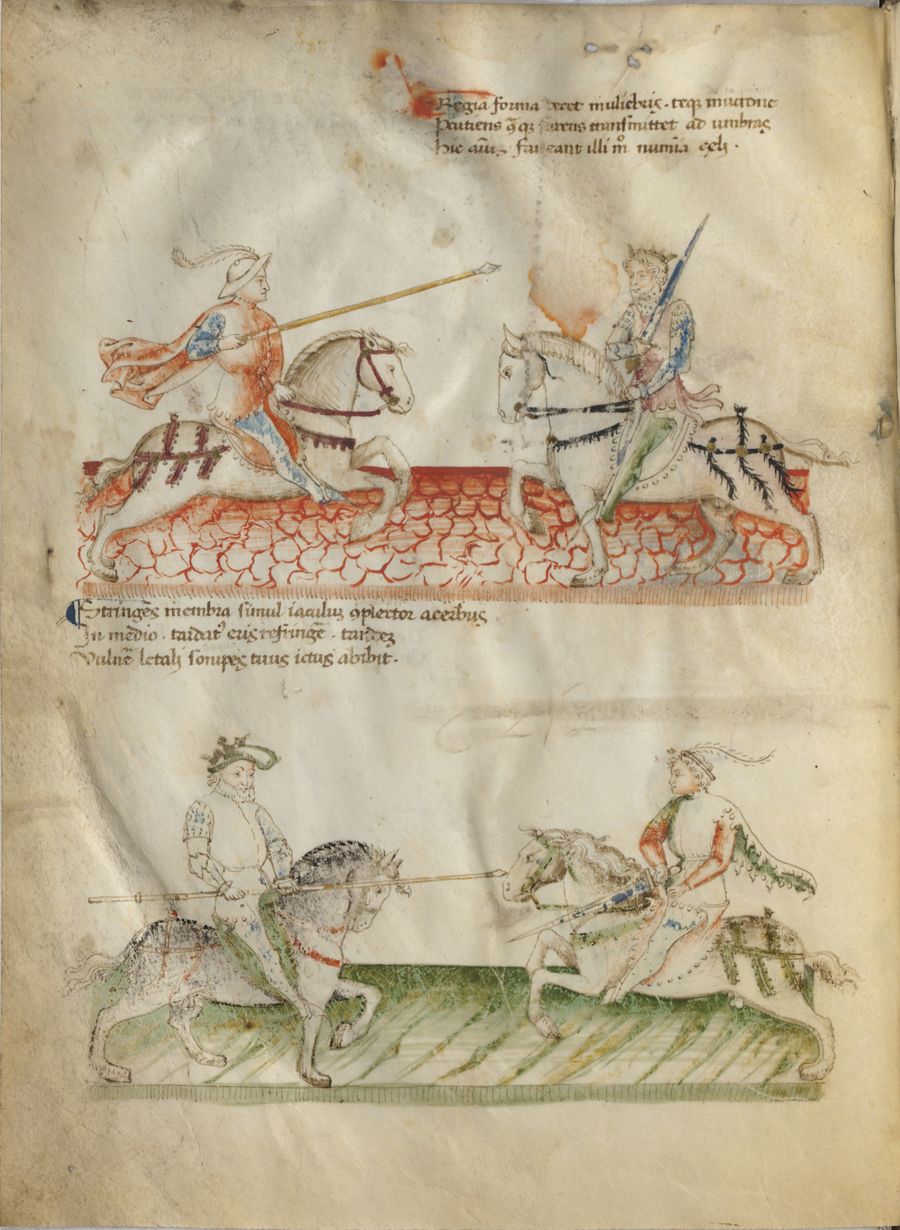 Regia forma decet muliebris · teq mucrone
Pcutiens transmittet ad umbras
Hic faveant illi numia celi ·
Stringens membra simul iaculum 9plector acerbus
In medio · tardat eris refringe · tandez
Vulne letali sonipes tuus ictus abibit ·